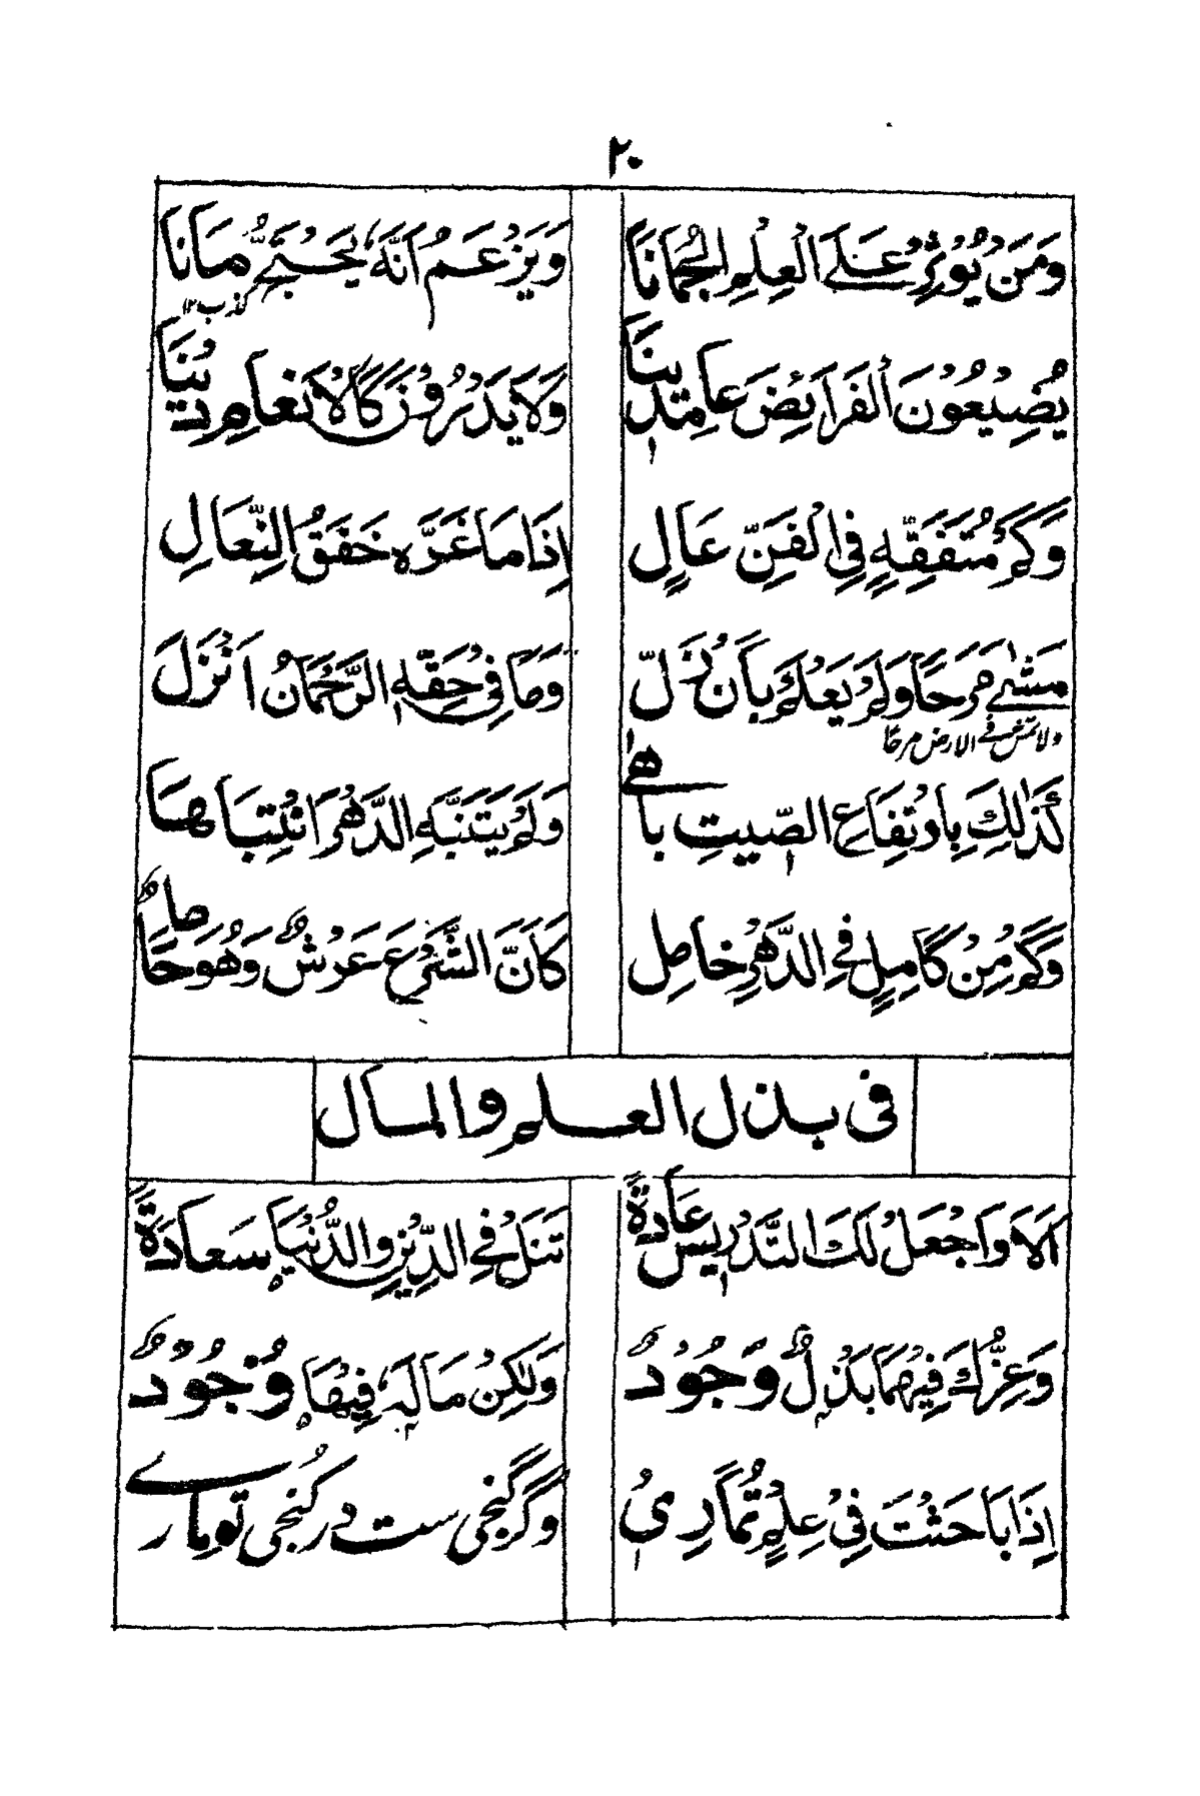 ٢٠
وَمَنْ يُوْثِرْ عَلَى الْعِلْمِ الْجُمَانَا
وَيَزْعَمُ اَنَّهُ يَجْتَبِيْ مَانَا
يُضِيْعُوْنَ الْفَرَائِضَ عَامِدِيْنَا
وَلَا يَدْرُوْنَ كَالْاَنْعَامِ دِيْنَا
وَكَمْ مُتَفَقِّهٍ فِي الْفَنِّ عَالٍ
اِذَا مَا غَرَّهٗ خَفَقُ النِّعَالِ
مَشٰى مَرَحًا وَلَمْ يَعْلَمْ بِاَنْ زَلّ
وَمَا فِيْ حَقِّهِ الرَّحْمَانُ اَنْزَلَ
ولا تمش فى الارض مرحًا
كَذٰلِكَ بِارْتِفَاعِ الصِّيتِ بَاهٰى
وَلَمْ يَتَنَبَّهِ الدَّهْرَ انْتِبَاهَا
وَكَمْ مِنْ كَامِلٍ فِي الدَّهْرِ خامِل
كَاَنَّ الشَّرْعَ عَرْشٌ وَهُوَ حَامِلٌ
فى بذل العلم والمال
اَلَا وَاجْعَلْ لَكَ التَّدْرِيسَ عَادَةً
تَنَلْ فِي الدِّيْنِ وَالدُّنْيَا سَعادَةً
وَعِزُّكَ فِيْهِمَا بَذْلٌ وَجُوْدٌ
وَلٰكِنْ مَا لَهٗ فِيْهَا وُجُوْدٌ
اِذَا بَاحَثْتَ فِيْ عِلْمٍ تُمَارِىْ
وگر گنجى ست در كُنجى تو مارے